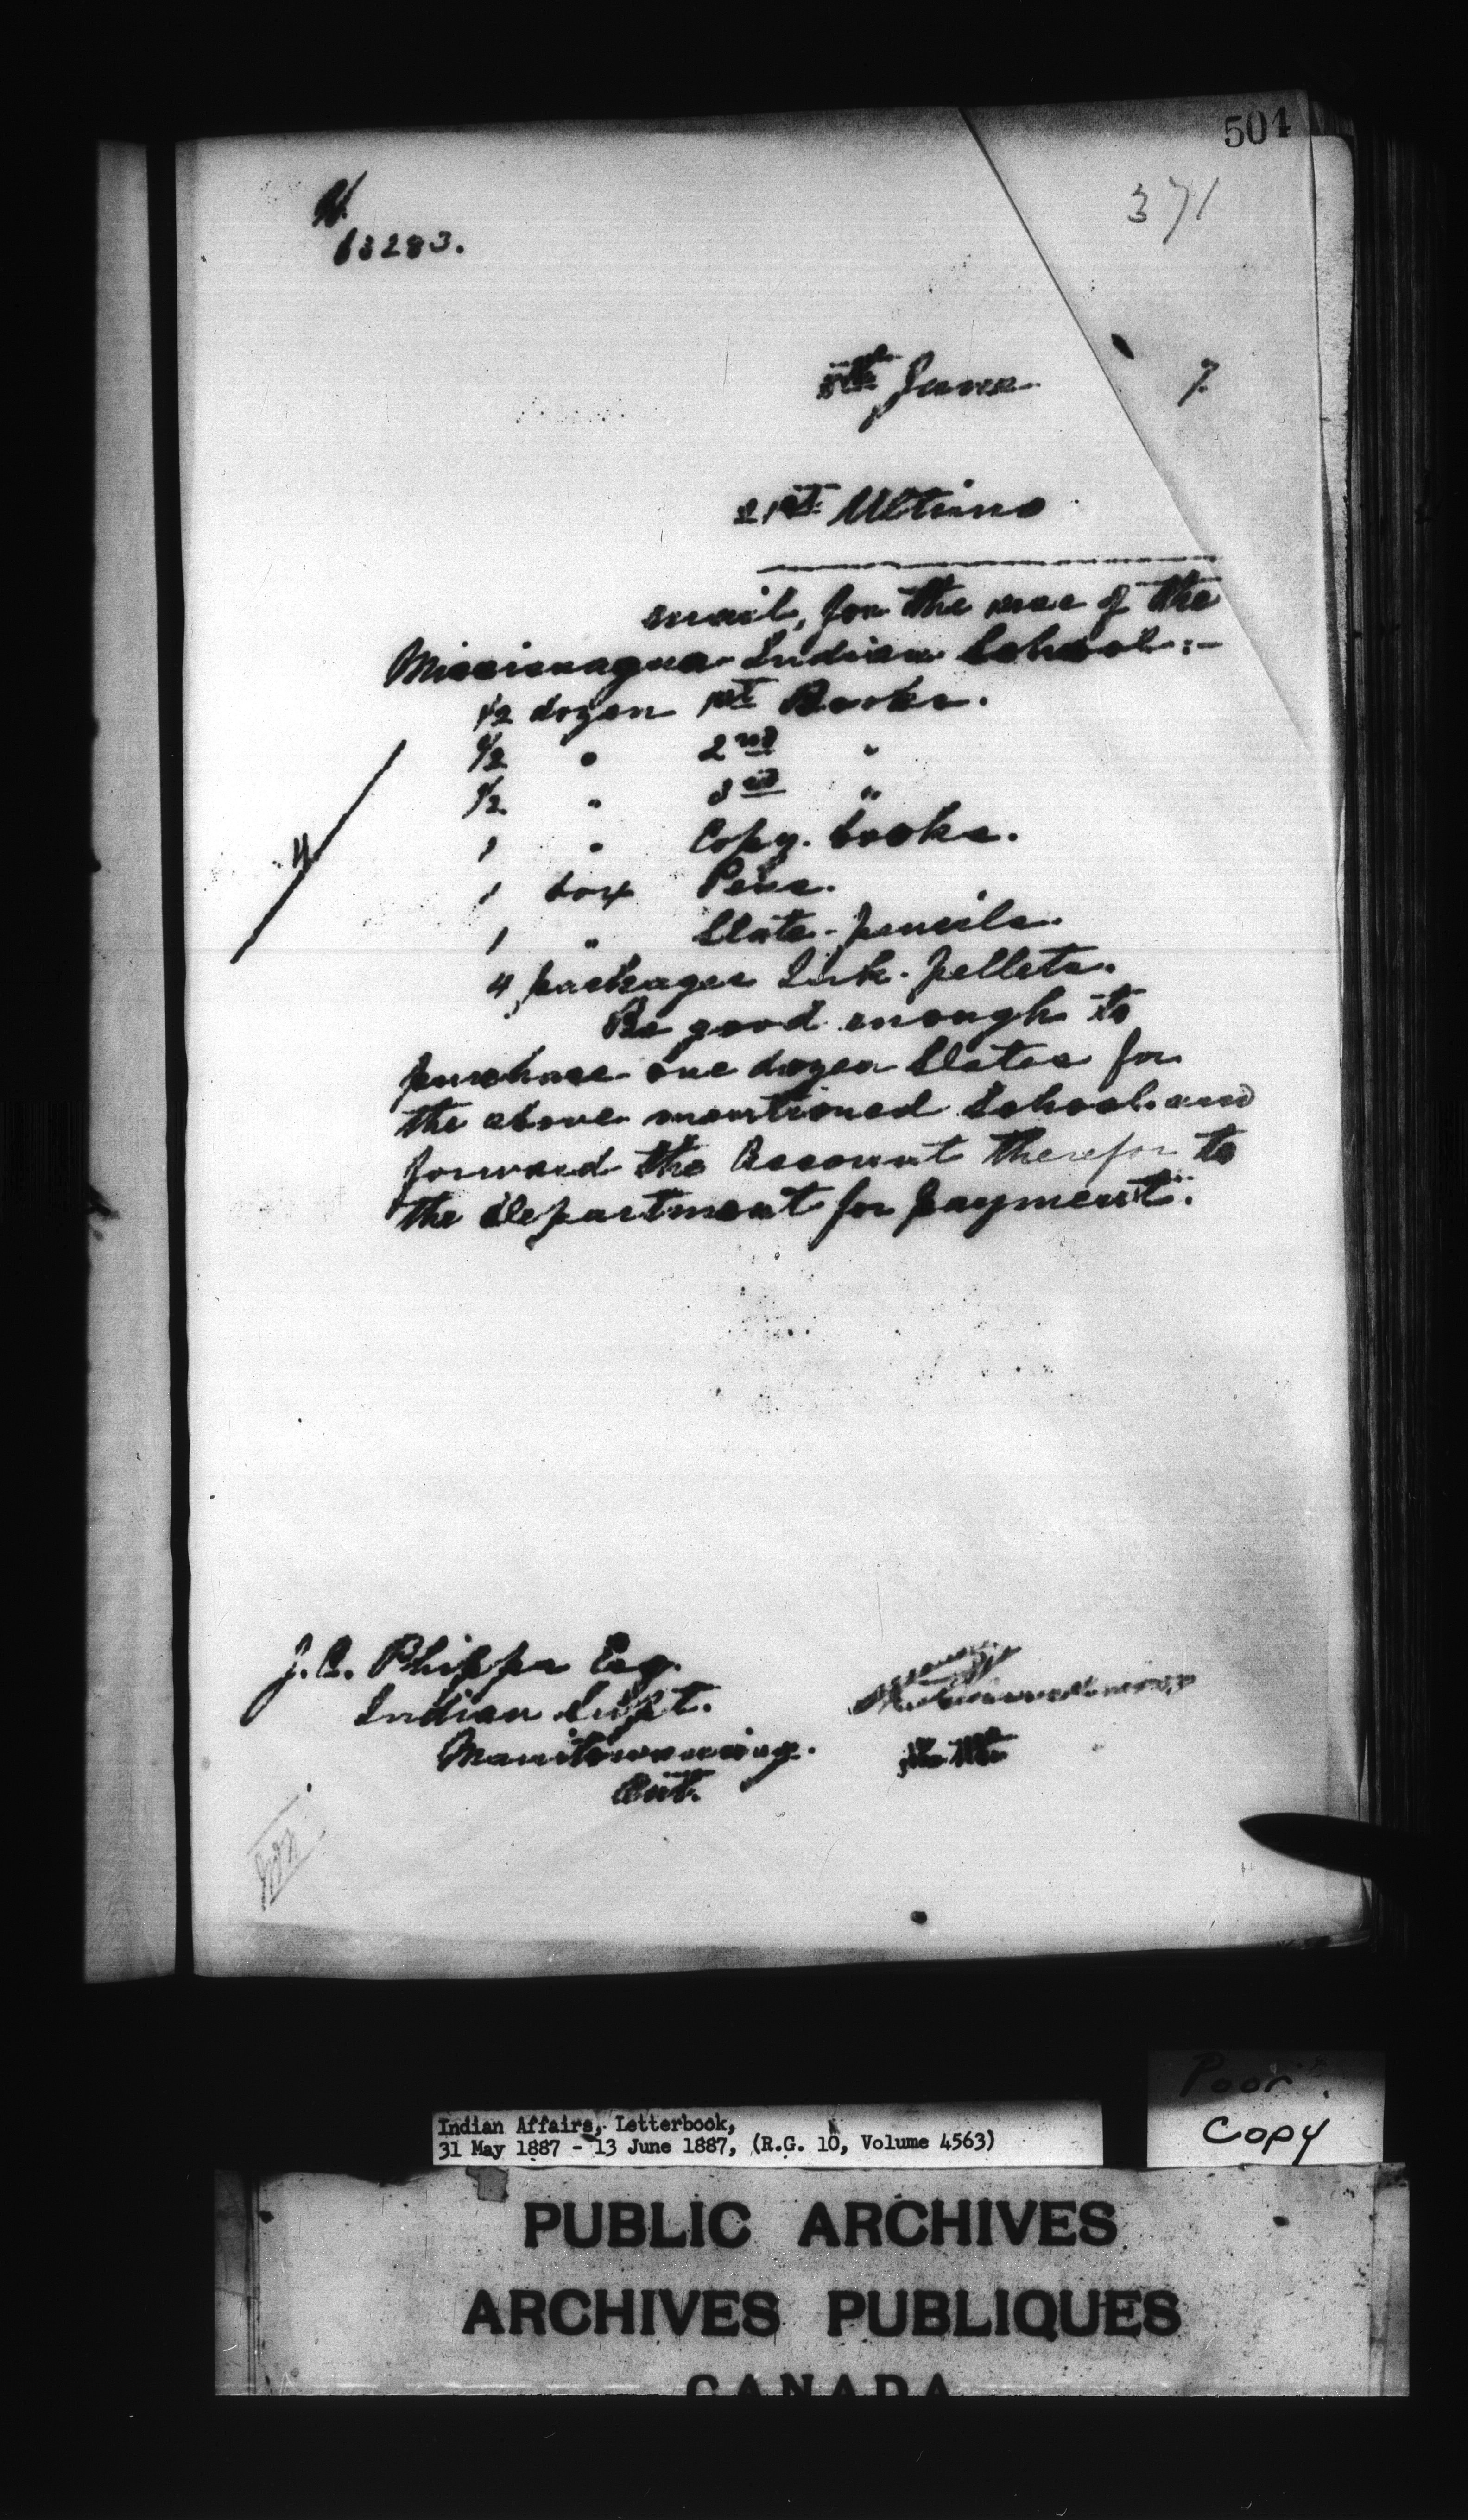 504
371
63283.
8th June 7.
21st Ultimo
mail, for the use of the
Mississagua Indian School:-
1/2 dozen 1st Books.
1/2 " 2nd "
1/2 " 3rd "
1 " Copy-books.
1 box Pens.
1 " Slate-pencils.
4 packages Ink-pellets.
Be good enough to
purchase one dozen Slates for
the above mentioned School and
forward the Account therefor to
the department for payment.
J.C. Phipps Esq.
Indian Supt.
Manitowaning.
Ont.
Poor
Copy
Indian Affairs, Letterbook,
31 May 1887 - 13 June 1887, (R.G. 10, Volume 4563)
PUBLIC ARCHIVES
ARCHIVES PUBLIQUES
CANADA